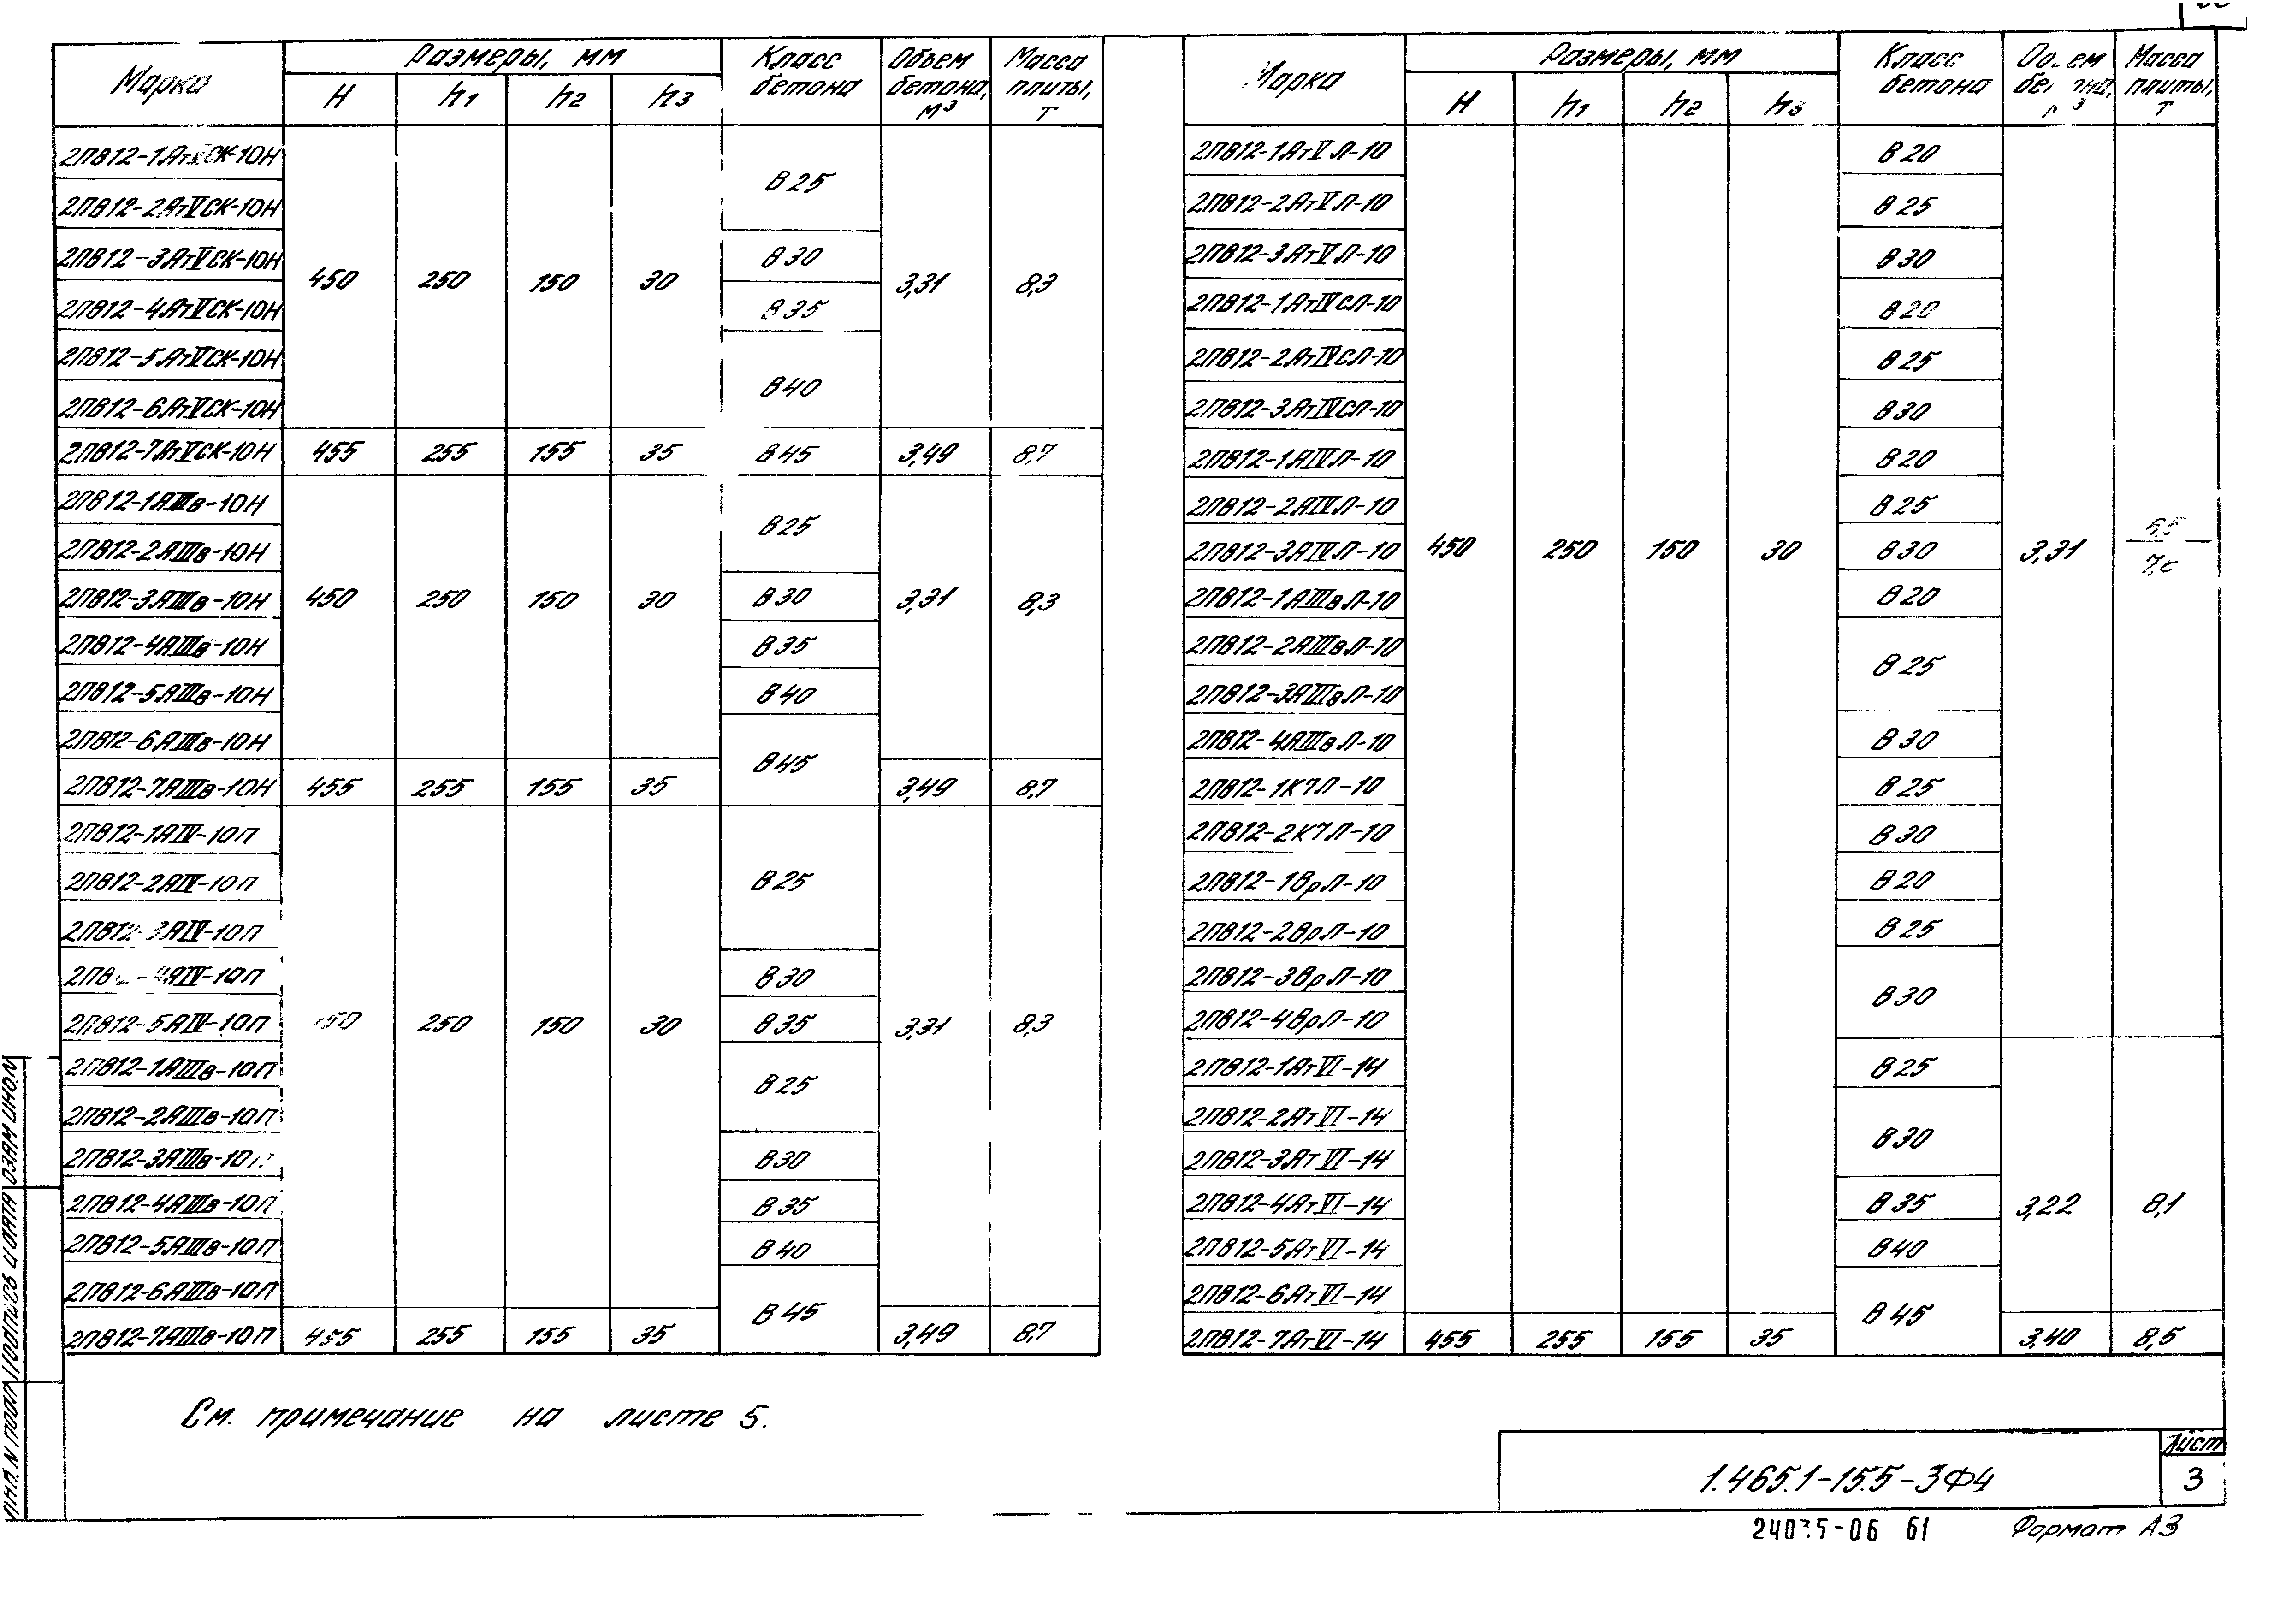 Марка Размеры, мм Класс бетона Объем бетона, м³ Масса плиты, т
H h1 h2 h3
2ПВ12-1АтVСК-10Н
2ПВ12-2АтVСК-10Н В25
2ПВ12-3АтVСК-10Н 450 250 150 30 В30 3,31 8,3
2ПВ12-4АтVСК-10Н В35
2ПВ12-5АтVСК-10Н
2ПВ12-6АтVСК-10Н В40
2ПВ12-7АтVСК-10Н 455 255 155 35 В45 3,49 8,7
2ПВ12-1АIIIв-10Н
2ПВ12-2АIIIв-10Н В25
2ПВ12-3АIIIв-10Н 450 250 150 30 В30 3,31 8,3
2ПВ12-4АIIIв-10Н В35
2ПВ12-5АIIIв-10Н В40
2ПВ12-6АIIIв-10Н В45
2ПВ12-7АIIIв-10Н 455 255 155 35 3,49 8,7
2ПВ12-1АIV-10П
2ПВ12-2АIV-10П В25
2ПВ12-3АIV-10П
2ПВ12-4АIV-10П В30
2ПВ12-5АIV-10П 450 250 150 30 В35 3,31 8,3
2ПВ12-1АIIIв-10П В25
2ПВ12-2АIIIв-10П
2ПВ12-3АIIIв-10П В30
2ПВ12-4АIIIв-10П В35
2ПВ12-5АIIIв-10П В40
2ПВ12-6АIIIв-10П В45
2ПВ12-7АIIIв-10П 455 255 155 35 3,49 8,7
Марка Размеры, мм Класс бетона Объем бетона, м³ Масса плиты, т
H h1 h2 h3
2ПВ12-1АтVЛ-10 В20
2ПВ12-2АтVЛ-10 В25
2ПВ12-3АтVЛ-10 В30
2ПВ12-1АтIVСЛ-10 В20
2ПВ12-2АтIVСЛ-10 В25
2ПВ12-3АтIVСЛ-10 В30
2ПВ12-1АIVЛ-10 В20
2ПВ12-2АIVЛ-10 В25
2ПВ12-3АIVЛ-10 450 250 150 30 В30 3,31
2ПВ12-1АIIIвЛ-10 В20
2ПВ12-2АIIIвЛ-10 В25
2ПВ12-3АIIIвЛ-10
2ПВ12-4АIIIвЛ-10 В30
2ПВ12-1К7Л-10 В25
2ПВ12-2К7Л-10 В30
2ПВ12-1ВрЛ-10 В20
2ПВ12-2ВрЛ-10 В25
2ПВ12-3ВрЛ-10 В30
2ПВ12-4ВрЛ-10
2ПВ12-1АтVI-14 В25
2ПВ12-2АтVI-14 В30
2ПВ12-3АтVI-14
2ПВ12-4АтVI-14 В35 3,22 8,1
2ПВ12-5АтVI-14 В40
2ПВ12-6АтVI-14 В45
2ПВ12-7АтVI-14 455 255 155 35 3,40 8,5
См. примечание на листе 5.
1.465.1-15.5-3Ф4
Лист
3
61 Формат А3